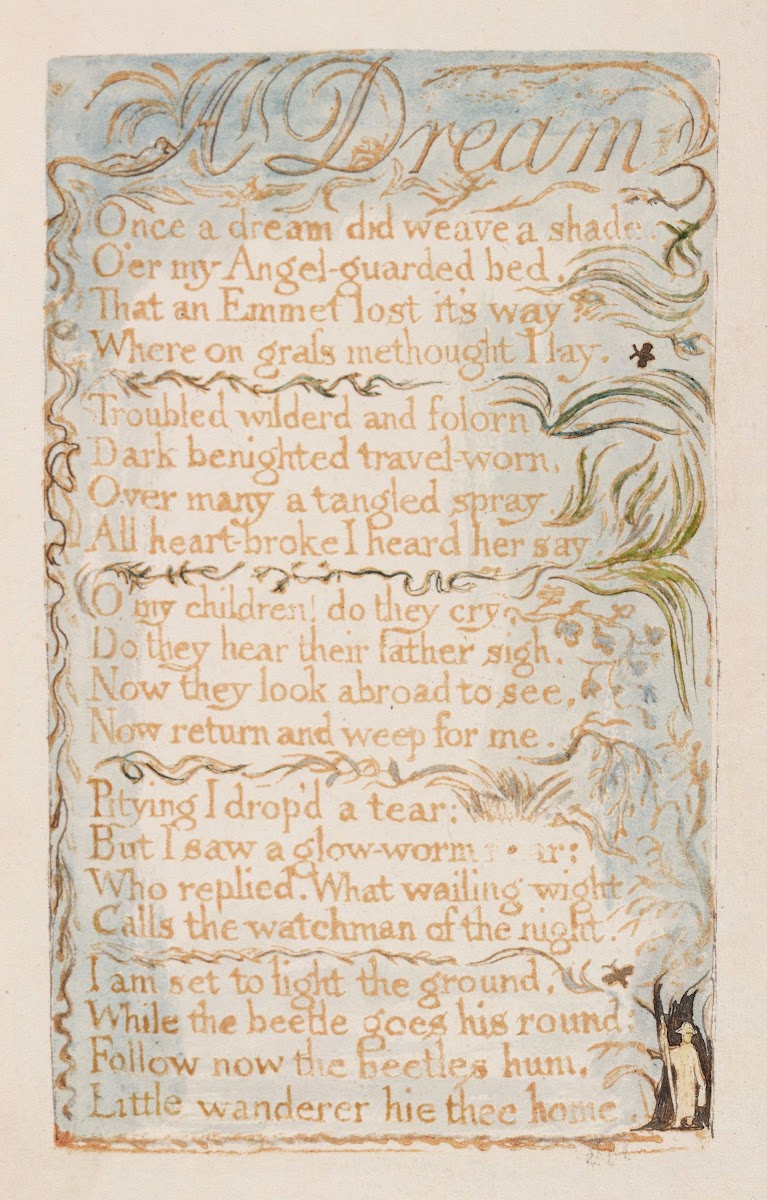 A Dream
Once a dream did weave a shade.
O'er my Angel-guarded bed.
That an Emmet lost it's way
Where on graſs methought I lay.
Troubled wilderd and folorn
Dark benighted travel-worn,
Over many a tangled spray
All heart-broke I heard her say.
O my children! do they cry,
Do they hear their father sigh.
Now they look abroad to see,
Now return and weep for me.
Pitying I drop'd a tear:
But I saw a glow-worm
Who replied. What wailing wight
Calls the watchman of the night.
I am set to light the ground,
While the beetle goes his round:
Follow now the beetles hum,
Little wanderer hie thee home.